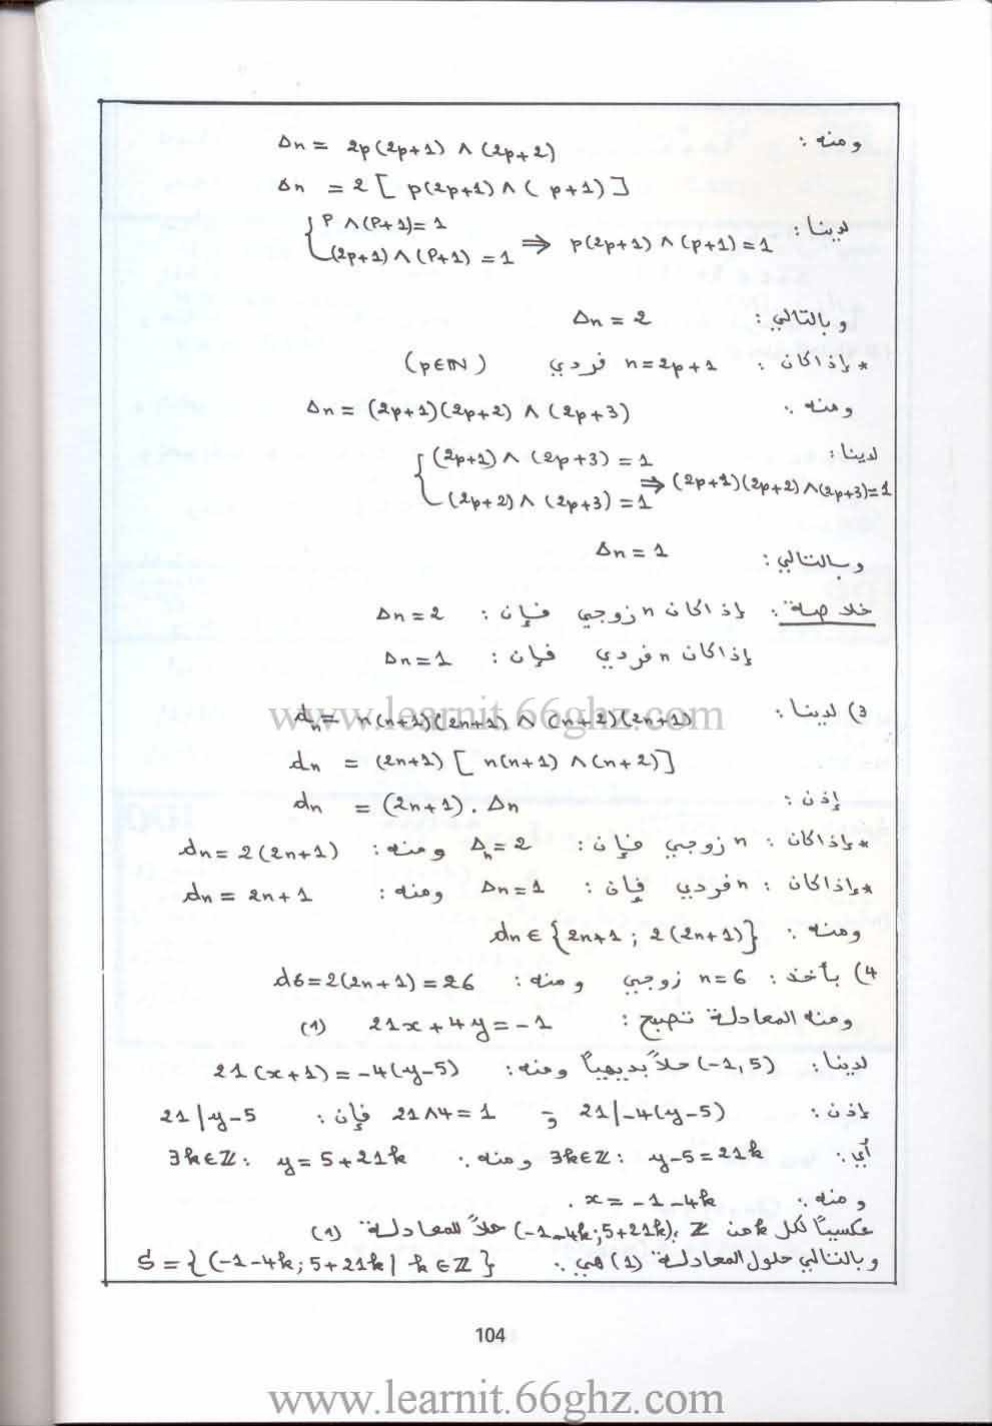 ومنه : Δn = 2p(2p+1) ∧ (2p+2)
Δn = 2 [ p(2p+1) ∧ ( p+1) ]
لدينا : { p ∧ (p+1) = 1
(2p+1) ∧ (p+1) = 1 ⇒ p(2p+1) ∧ (p+1) = 1
و بالتالي : Δn = 2
* إذا كان : n = 2p+1 فردي (p∈ℕ)
ومنه : Δn = (2p+1)(2p+2) ∧ (2p+3)
لدينا : { (2p+1) ∧ (2p+3) = 1
(2p+2) ∧ (2p+3) = 1 ⇒ (2p+1)(2p+2) ∧ (2p+3) = 1
وبالتالي : Δn = 1
خلاصة : إذا كان n زوجي فإن : Δn = 2
إذا كان n فردي فإن : Δn = 1
3) لدينا : dn = n(n+1)(2n+1) ∧ (n+2)(2n+1)
www.learnit.66ghz.com
dn = (2n+1) [ n(n+1) ∧ (n+2) ]
إذن : dn = (2n+1) . Δn
* إذا كان : n زوجي فإن : Δn = 2 ومنه : dn = 2(2n+1)
* إذا كان : n فردي فإن : Δn = 1 ومنه : dn = 2n+1
ومنه : dn ∈ {2n+1 ; 2(2n+1)}
4) بأخذ : n = 6 زوجي ومنه : d6 = 2(2n+1) = 26
ومنه المعادلة تصبح : 21x + 4y = -1 (1)
لدينا : (-1,5) حلاً بديهياً ومنه : 21(x+1) = -4(y-5)
إذن : 21 | -4(y-5) و 21∧4 = 1 فإن : 21 | y-5
أي : ∃k∈ℤ : y-5 = 21k ومنه : ∃k∈ℤ : y = 5+21k
ومنه : x = -1-4k .
عكسياً لكل k من ℤ ; (-1-4k ; 5+21k) حلاً للمعادلة (1)
وبالتالي حلول المعادلة (1) هي : S = {(-1-4k ; 5+21k | k ∈ ℤ}
104
www.learnit.66ghz.com